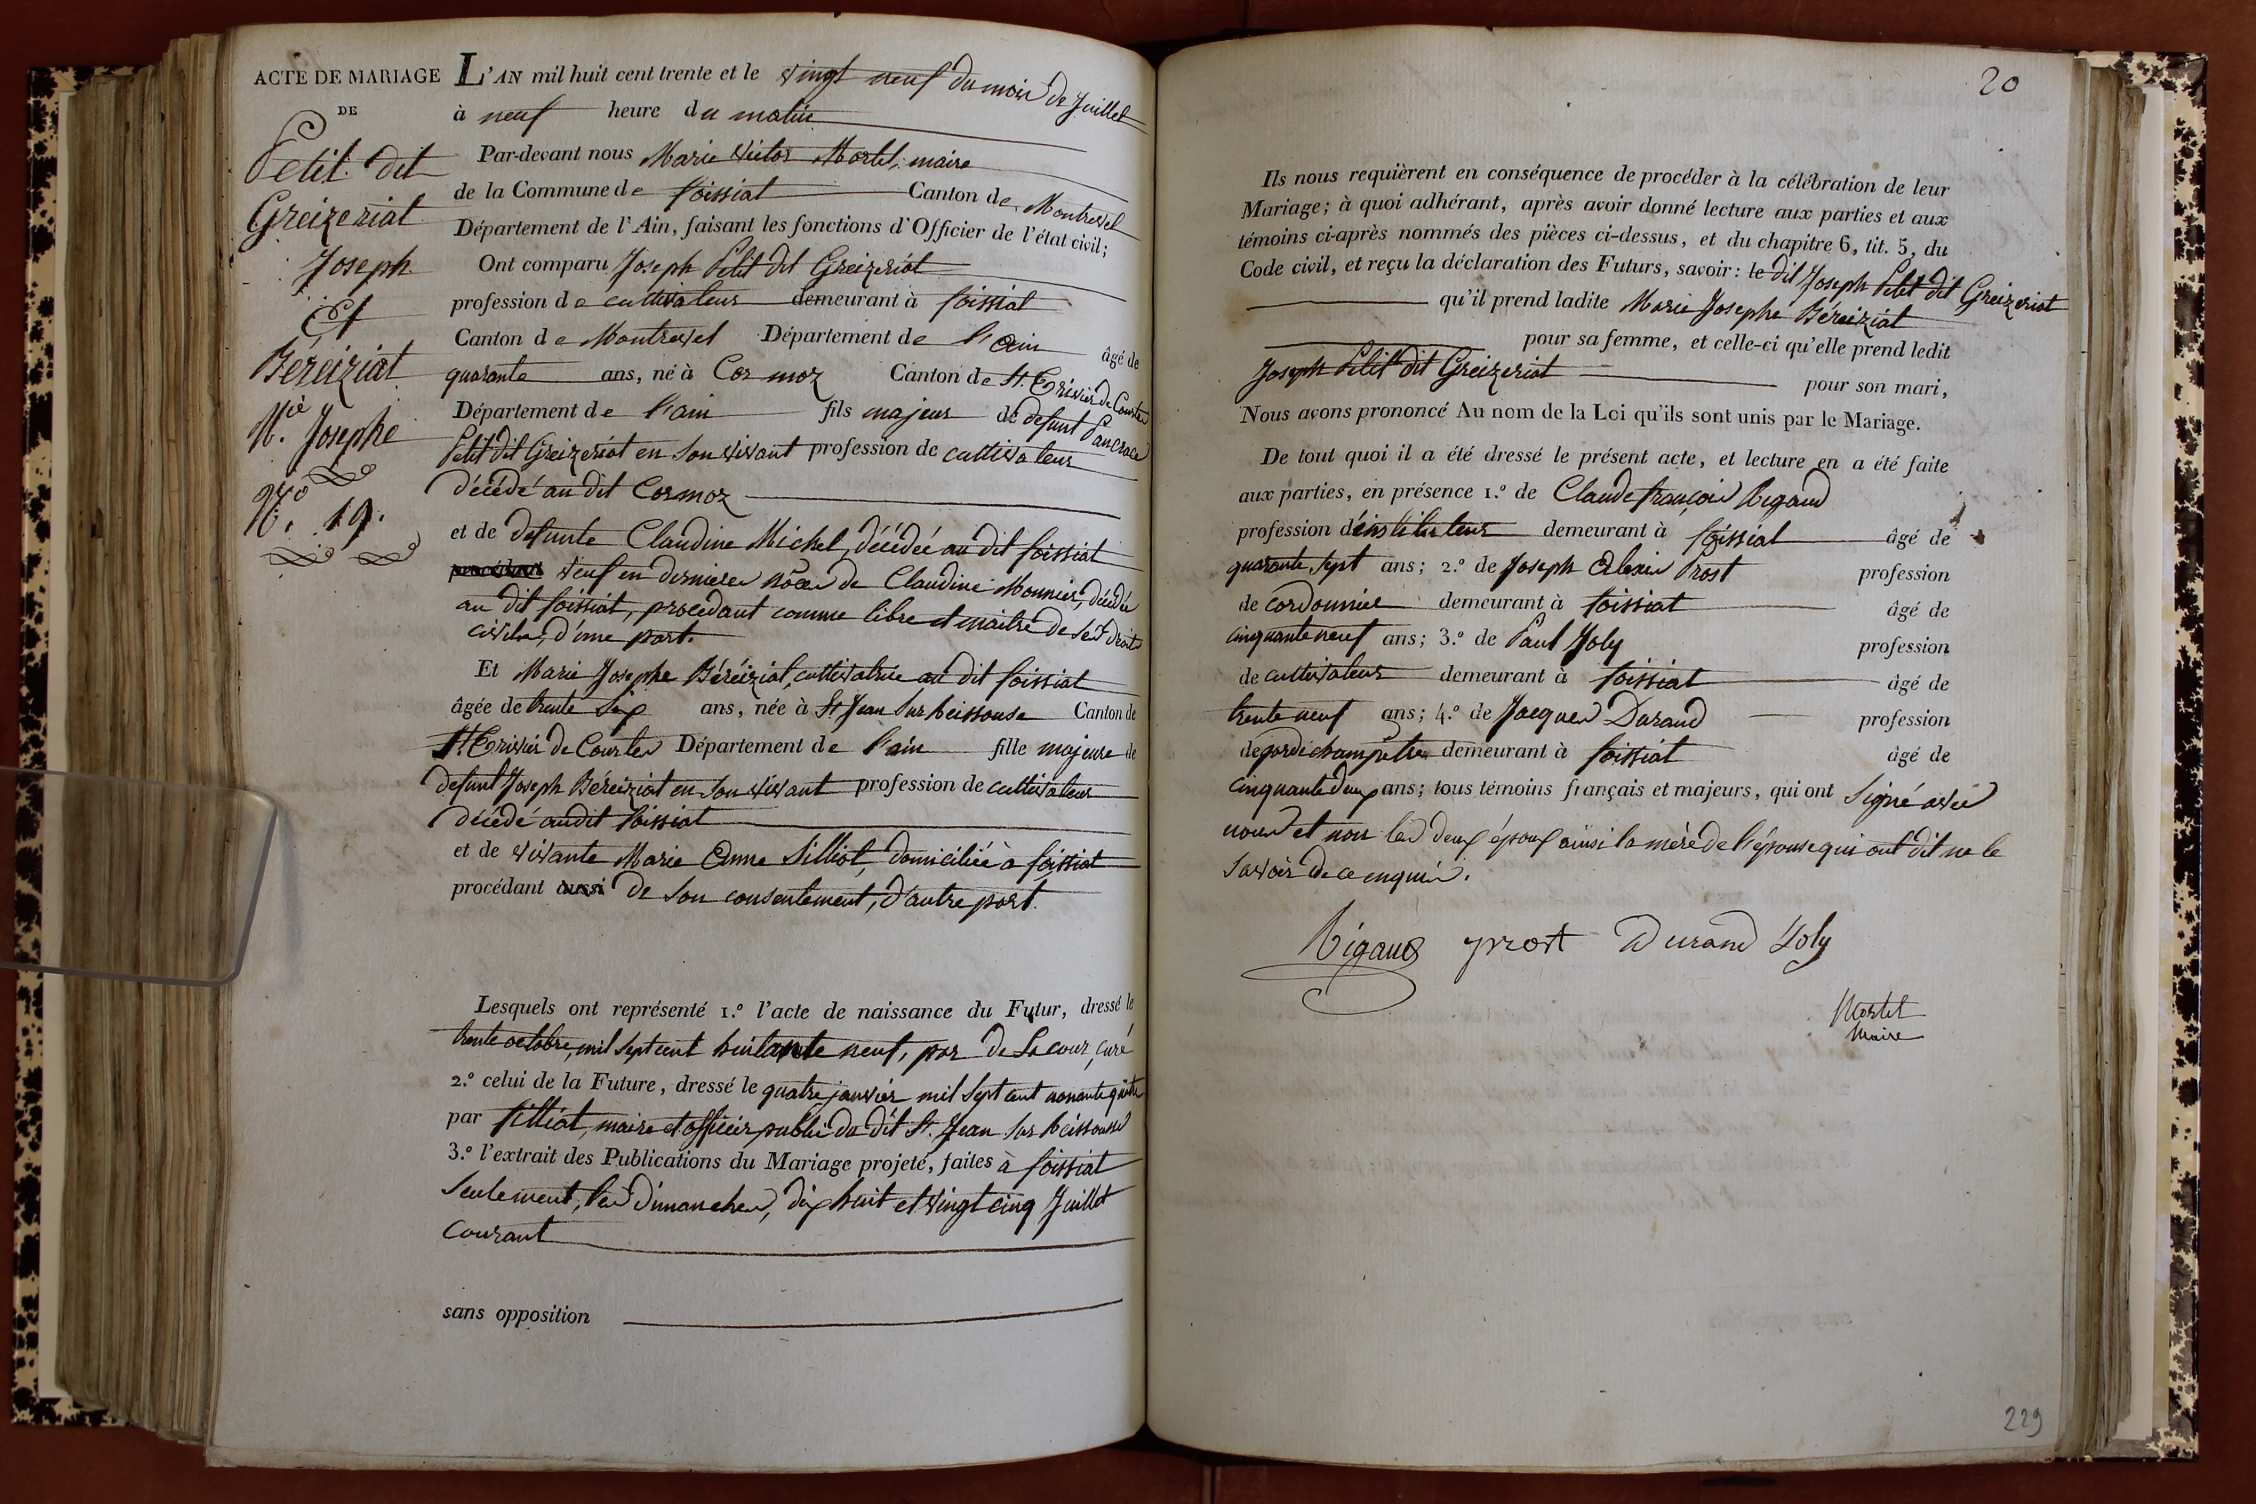 ACTE DE MARIAGE
DE
Petit dit
Greizeriat
Joseph
Et
Béréiziat
Mie. Josephe
No. 19.
L'AN mil huit cent trente et le vingt neuf du mois de Juillet
à neuf heure du matin
Par-devant nous Marie Victor Mortel, maire
de la Commune de foissiat Canton de Montrevel
Département de l'Ain, faisant les fonctions d'Officier de l'état civil;
Ont comparu Joseph Petit dit Greizeriat
profession de cultivateur demeurant à foissiat
Canton de Montrevel Département de l'ain âgé de
quarante ans, né à Cormoz Canton de St. Trivier de Courtes
Département de l'ain fils majeur de defunt Pancrace
Petit dit Greizeriat en son vivant profession de cultivateur
décédé au dit Cormoz
et de defunte Claudine Michel, décédée au dit foissiat
procédant veuf en dernieres nôces de Claudine Monnier, décédée
au dit foissiat, procedant comme libre et maitre de ses droits
civils, d'une part.
Et Marie Josephe Béréiziat, cultivatrice au dit foissiat
âgée de trente six ans, née à St. Jean sur Reissouse Canton de
St. Trivier de Courtes Département de l'ain fille majeure de
defunt Joseph Béréiziat en son vivant profession de cultivateur
décédé audit foissiat
et de vivante Marie Anne Silliot, domiciliée à foissiat
procédant aussi de son consentement, d'autre part.
Lesquels ont représenté 1.º l'acte de naissance du Futur, dressé le
trente octobre, mil sept cent huitante neuf, par de Lacour, curé
2.º celui de la Future, dressé le quatre janvier mil sept cent nonante quatre
par filliat, maire et officier public du dit St. Jean sur Reissousse
3.º l'extrait des Publications du Mariage projeté, faites à foissiat
Seulement, les Dimanches, dix huit et vingt cinq Juillet
Courant
sans opposition
20
Ils nous requièrent en conséquence de procéder à la célébration de leur
Mariage; à quoi adhérant, après avoir donné lecture aux parties et aux
témoins ci-après nommés des pièces ci-dessus, et du chapitre 6, tit. 5, du
Code civil, et reçu la déclaration des Futurs, savoir: le dit Joseph Petit dit Greizeriat
qu'il prend ladite Marie Josephe Béréiziat
pour sa femme, et celle-ci qu'elle prend ledit
Joseph Petit dit Greizeriat pour son mari,
Nous avons prononcé Au nom de la Loi qu'ils sont unis par le Mariage.
De tout quoi il a été dressé le présent acte, et lecture en a été faite
aux parties, en présence 1.º de Claude françois Rigaud
profession d'instituteur demeurant à foissiat âgé de
quarante sept ans; 2.º de Joseph Alexis Prost profession
de cordonnier demeurant à foissiat âgé de
cinquante neuf ans; 3.º de Paul Joly profession
de cultivateur demeurant à foissiat âgé de
trente neuf ans; 4.º de Jacques Durand profession
de garde champêtre demeurant à foissiat âgé de
cinquante deux ans; tous témoins français et majeurs, qui ont signé avec
nous et non les deux époux ainsi la mère de l'épouse qui ont dit ne le
savoir de ce enquis.
Rigaud prost Durand Joly
Mortel
Maire
229